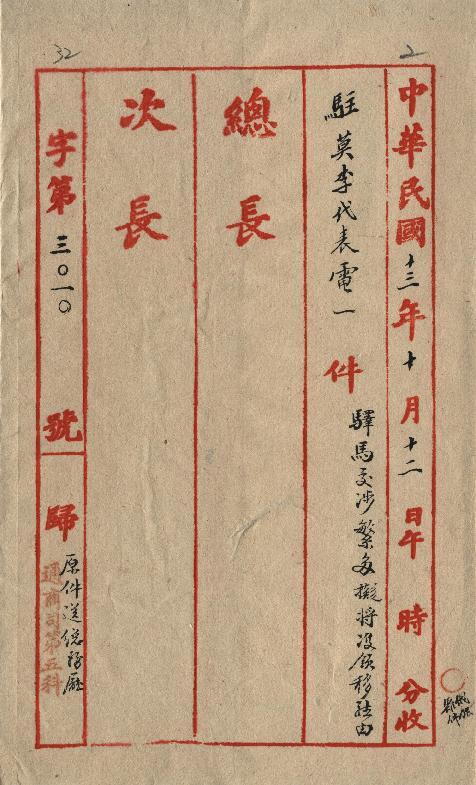 32
2
中華民國十三年十月十二日午 時 分收
駐莫李代表電一 件
驛馬交涉繁多擬將 領移駐由
總長
次長
字第三〇一〇 號 歸
原件送總務廳
通商司第五科